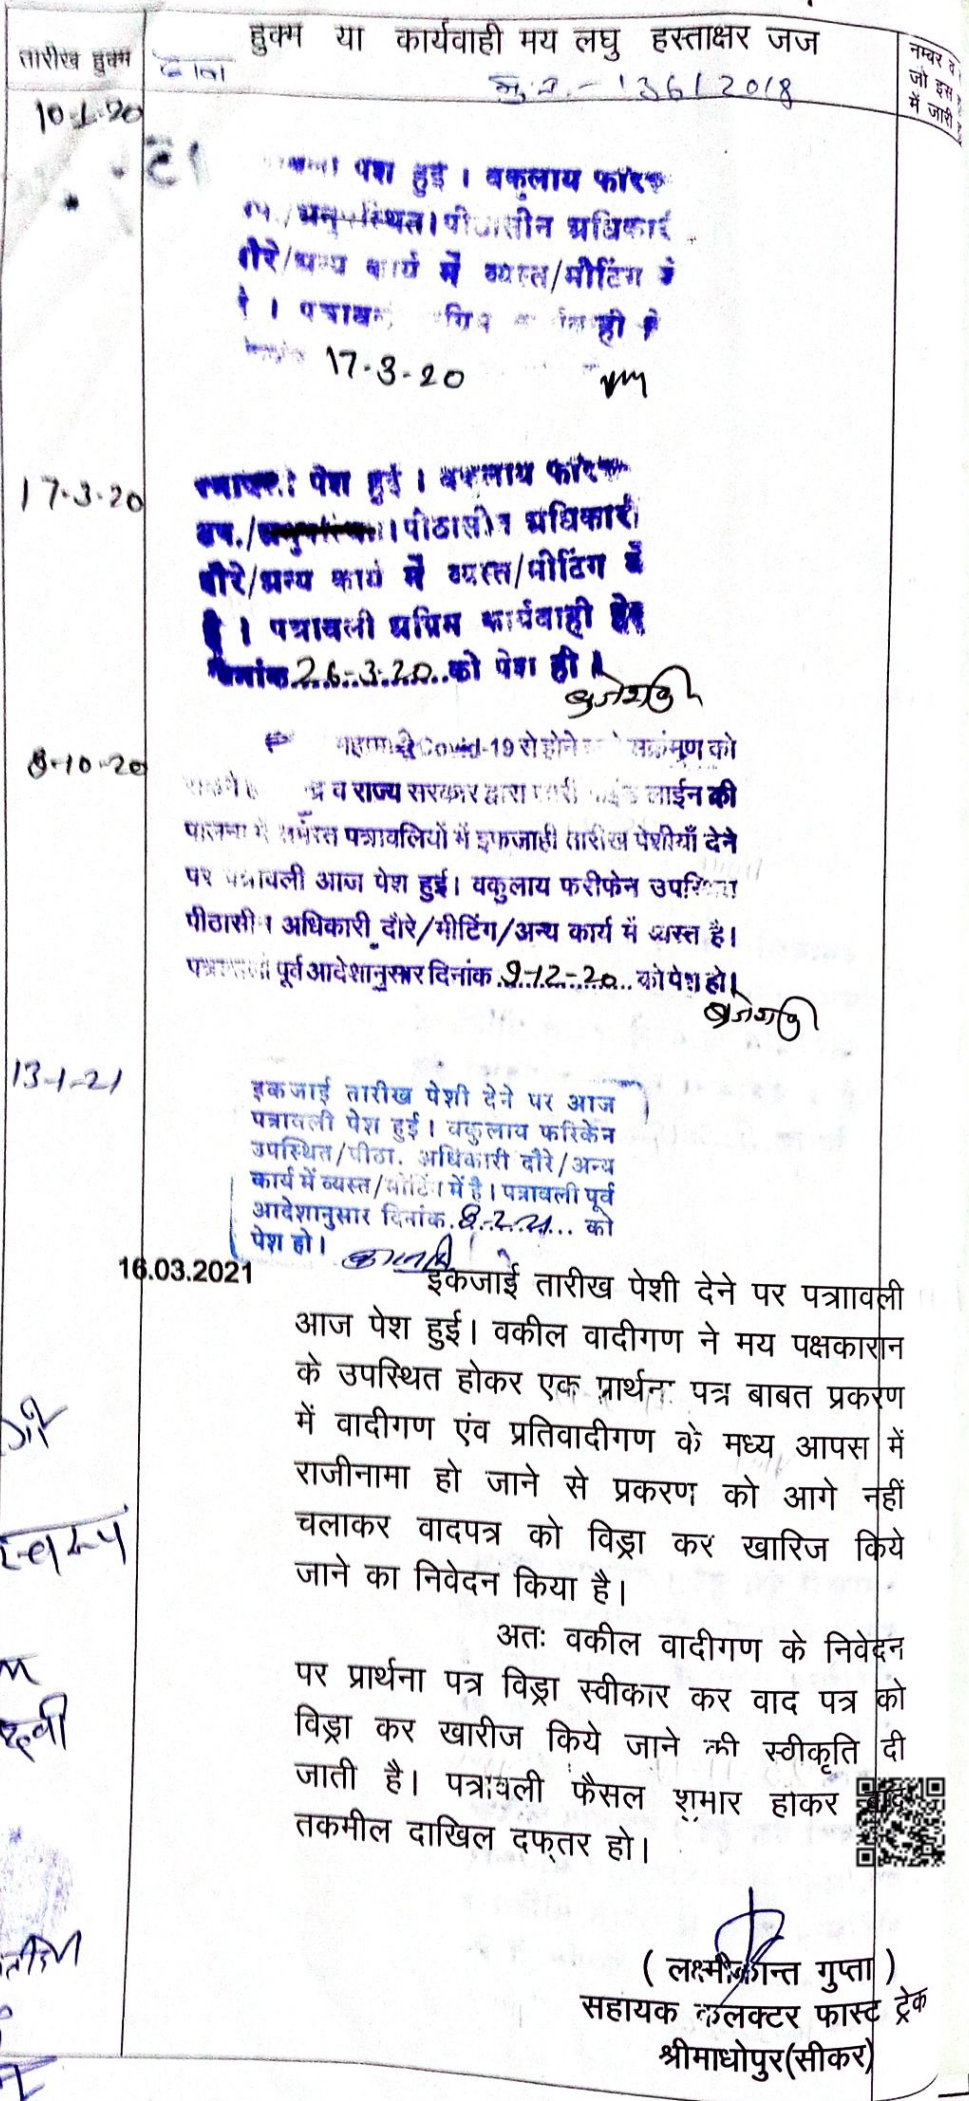 हुक्म या कार्यवाही मय लघु हस्ताक्षर जज
तारीख हुक्म
दावा
मु.न.- 136/2018
नम्बर व
जो इस
में जारी
10-1-20
पेश हुई । वकुलाय फरिक
अनुपस्थित। पीठासीन अधिकारी
दौरे/अन्य कार्य में व्यस्त/मीटिंग में
है । पत्रावली
17-3-20
17-3-20
पत्रावली पेश हुई । वकुलाय फरिक
उप./अनुपस्थित। पीठासीन अधिकारी
दौरे/अन्य कार्य में व्यस्त/मीटिंग में
है । पत्रावली अग्रिम कार्यवाही हेतु
दिनांक 26-3-20 को पेश हो ।
8-10-20
महामारी Covid-19 से होने वाले संक्रमण को
व राज्य सरकार द्वारा जारी गाईड लाईन की
पालना में समस्त पत्रावलियों में इकजाही तारीख पेशीयाँ देने
पर पत्रावली आज पेश हुई। वकुलाय फरीकेन उपस्थित
पीठासीन अधिकारी दौरे/मीटिंग/अन्य कार्य में व्यस्त है।
पत्रावली पूर्व आदेशानुसार दिनांक 9-12-20 को पेश हो।
13-1-21
इकजाई तारीख पेशी देने पर आज
पत्रावली पेश हुई। वकुलाय फरिकेन
उपस्थित/पीठा. अधिकारी दौरे/अन्य
कार्य में व्यस्त/मीटिंग में है। पत्रावली पूर्व
आदेशानुसार दिनांक 8-2-21 को
पेश हो।
16.03.2021
इकजाई तारीख पेशी देने पर पत्राावली
आज पेश हुई। वकील वादीगण ने मय पक्षकारान
के उपस्थित होकर एक प्रार्थना पत्र बाबत प्रकरण
में वादीगण एंव प्रतिवादीगण के मध्य आपस में
राजीनामा हो जाने से प्रकरण को आगे नहीं
चलाकर वादपत्र को विड्रा कर खारिज किये
जाने का निवेदन किया है।
अतः वकील वादीगण के निवेदन
पर प्रार्थना पत्र विड्रा स्वीकार कर वाद पत्र को
विड्रा कर खारीज किये जाने की स्वीकृति दी
जाती है। पत्रावली फैसल शुमार होकर बाद
तकमील दाखिल दफ्तर हो।
( लक्ष्मीकान्त गुप्ता )
सहायक कलक्टर फास्ट ट्रेक
श्रीमाधोपुर(सीकर)